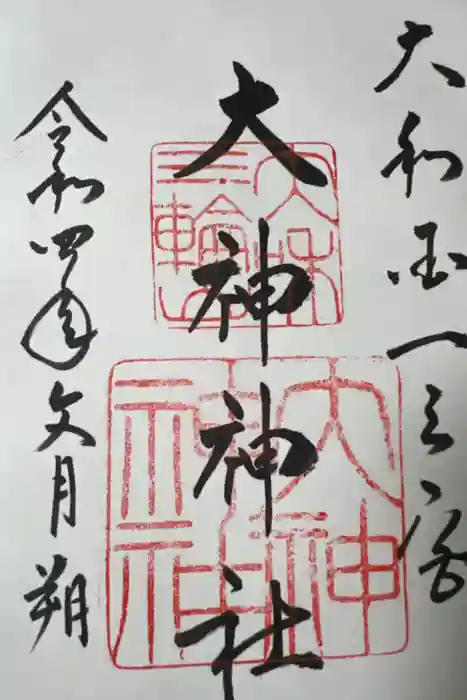 大和国一之宮
大神神社
令和四年文月朔
大和
三輪山
大神
神社